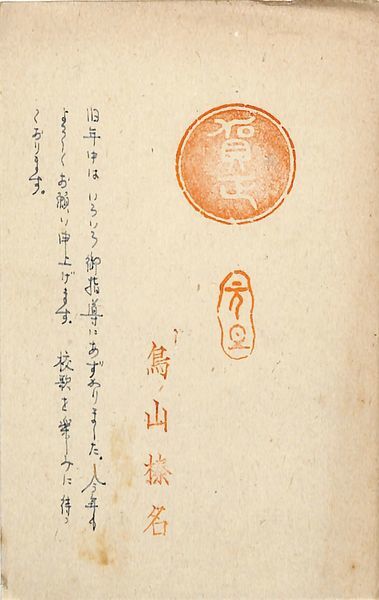 賀正
元旦
鳥山榛名
旧年中はいろいろ御指導にあずかりました。今年も
よろしくお願い申上げます。 校歌を楽しみに待っ
ております。